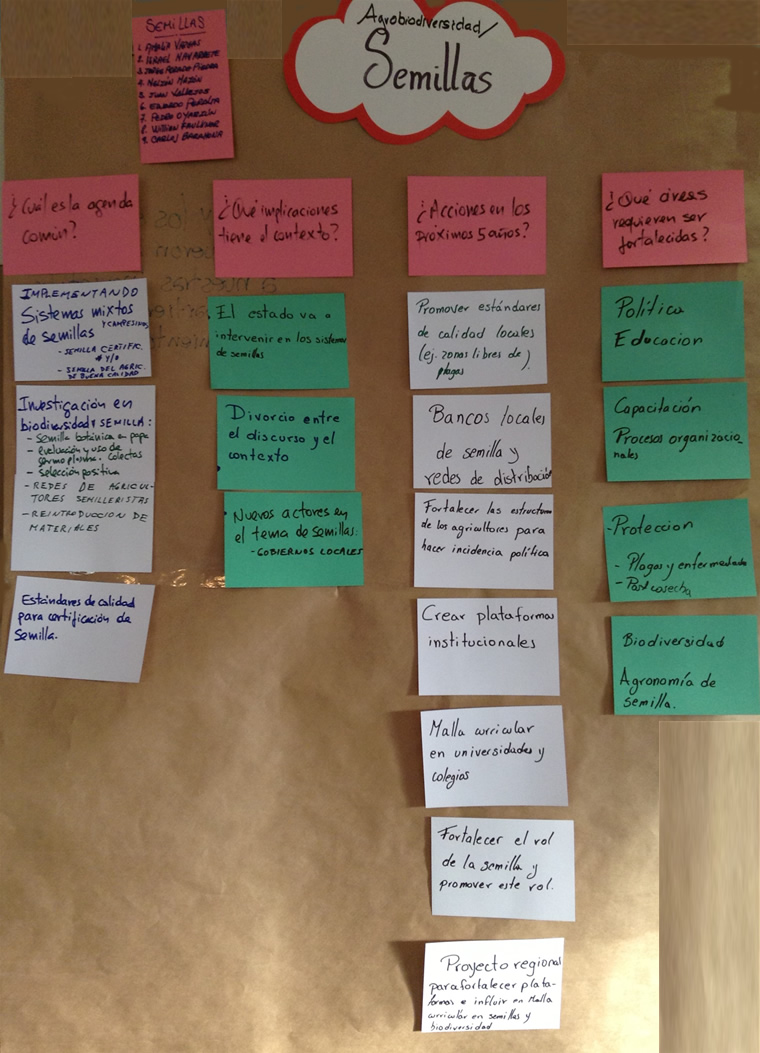 Agrobiodiversidad/
Semillas
SEMILLAS
1. AMALIA VARGAS
2. ISRAEL NAVARRETE
3. JORGE
4. NELSON MAZÓN
5. JUAN VALLEJOS
6. EDUARDO PERALTA
7. PEDRO OYARZÚN
8. WILLIAM
9. CARLOS BARAHONA
¿Cuál es la agenda
común?
IMPLEMENTANDO
Sistemas mixtos
de semillas Y CAMPESINOS
- SEMILLA CERTIFIC.
Y/O
- SEMILLA DEL AGRIC.
DE BUENA CALIDAD
Investigación en
biodiversidad Y SEMILLA:
- Semilla botánica en papa
- evaluación y uso de
germoplasma. colectas
- selección positiva
- REDES DE AGRICUL-
TORES SEMILLERISTAS
- REINTRODUCCION DE
MATERIALES
Estándares de calidad
para certificación de
Semilla.
¿Qué implicaciones
tiene el contexto?
El estado va a
intervenir en los sistemas
de semillas
Divorcio entre
el discurso y el
contexto
Nuevos actores en
el tema de semillas:
- GOBIERNOS LOCALES
¿Acciones en los
próximos 5 años?
Promover estándares
de calidad locales
(ej. zonas libres de
plagas).
Bancos locales
de semilla y
redes de distribución
Fortalecer las estructuras
de los agricultores para
hacer incidencia política
Crear plataformas
institucionales
Malla curricular
en universidades y
colegios
Fortalecer el rol
de la semilla y
promover este rol.
Proyecto regional
para fortalecer plata-
formas e influir en Malla
curricular en semillas y
biodiversidad
¿Qué áreas
requieren ser
fortalecidas?
Política
Educacion
Capacitación
Procesos organizacio-
nales
- Proteccion
- Plagas y enfermedades
- Post cosecha
Biodiversidad
Agronomía de
semilla.